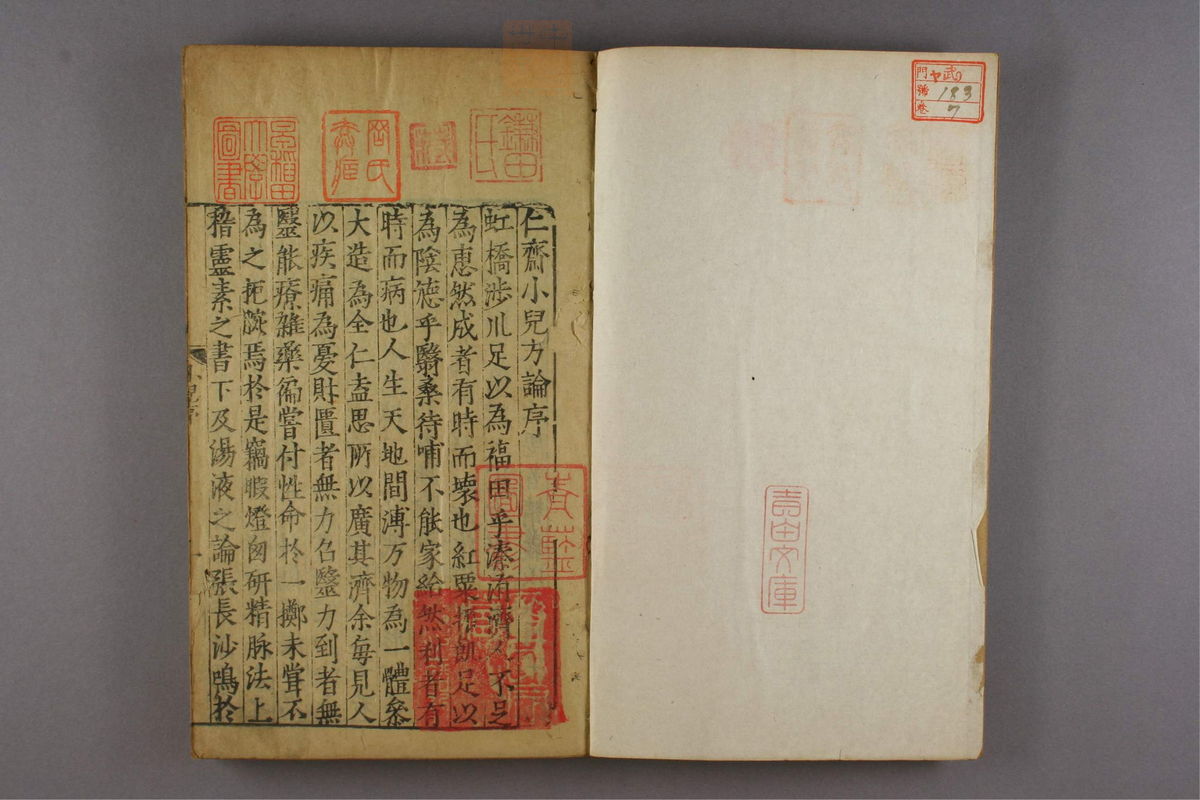 門 ヤ 武
號 183
卷 7
青田文庫
鑄田氏
早稲田大學圖書
青藍圖書
仁齋小兒方論序
虹橋涉川足以為福田乎溱洧濟人不足
為惠然成者有時而壞也紅粟振飢足以
為陰德乎翳桑待哺不能家給然利者有
時而病也人生天地間溥万物為一體叅
大造為全仁盍思所以廣其濟余每見人
以疾痛為憂財匱者無力召毉力到者無
毉能療雜藥徧嘗付性命於一擲未甞不
為之扼腕焉於是竊暇燈囱研精脉法上
稽靈素之書下及湯液之論張長沙鳴於
小兒序